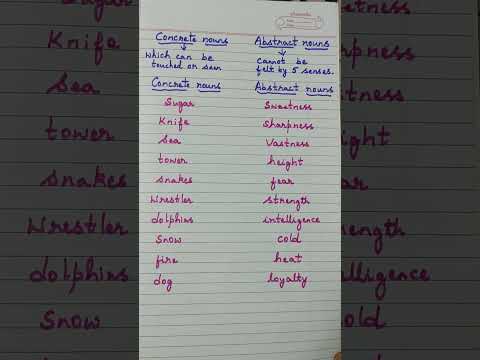 Concrete nouns Abstract nouns
which can be cannot be
touched or seen felt by 5 senses.
Concrete nouns Abstract nouns
Sugar Sweetness
Knife Sharpness
Sea Vastness
tower height
snakes fear
Wrestler strength
dolphins intelligence
Snow cold
fire heat
dog loyalty